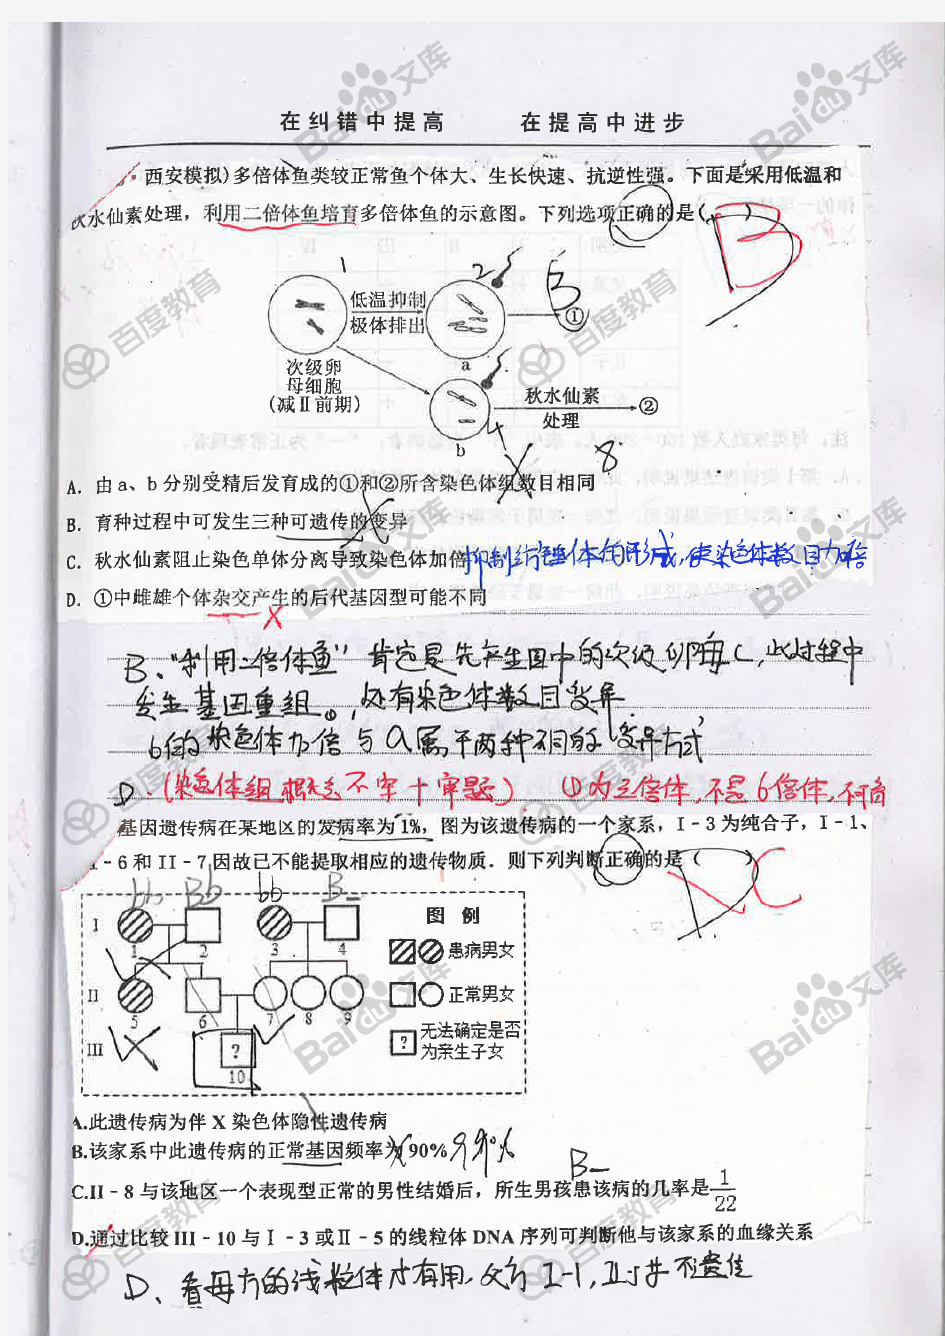 在纠错中提高 在提高中进步
西安模拟)多倍体鱼类较正常鱼个体大、生长快速、抗逆性强。下面是采用低温和
秋水仙素处理，利用二倍体鱼培育多倍体鱼的示意图。下列选项正确的是( )
B
1
2
B
低温抑制
极体排出
①
a
次级卵
母细胞
(减Ⅱ前期)
秋水仙素
处理
②
b
4
8
A．由a、b分别受精后发育成的①和②所含染色体组数目相同
B．育种过程中可发生三种可遗传的变异
C．秋水仙素阻止染色单体分离导致染色体加倍 抑制纺锤体的形成，使染色体数目加倍
D．①中雌雄个体杂交产生的后代基因型可能不同
B、“利用二倍体鱼”肯定是先产生图中的次级卵母C，此过程中
发生基因重组。，还有染色体数目变异
b的染色体加倍与a属于两种不同的变异方式
D.(染色体组概念不牢+审题) ①为三倍体，不是6倍体，不可育
基因遗传病在某地区的发病率为1%，图为该遗传病的一个家系，I－3为纯合子，I－1、
－6和II－7因故已不能提取相应的遗传物质．则下列判断正确的是（ ）
D C
bb Bb bb B_
I
1 2 3 4
II
5 6 7 8 9
III
?
10
图 例
患病男女
正常男女
? 无法确定是否
为亲生子女
A.此遗传病为伴X染色体隐性遗传病
B.该家系中此遗传病的正常基因频率为90% 90%
B_
C.II－8与该地区一个表现型正常的男性结婚后，所生男孩患该病的几率是1/22
D.通过比较III－10与I－3或II－5的线粒体DNA序列可判断他与该家系的血缘关系
D、看母方的线粒体才有用，父方I-1，II-5并不遗传